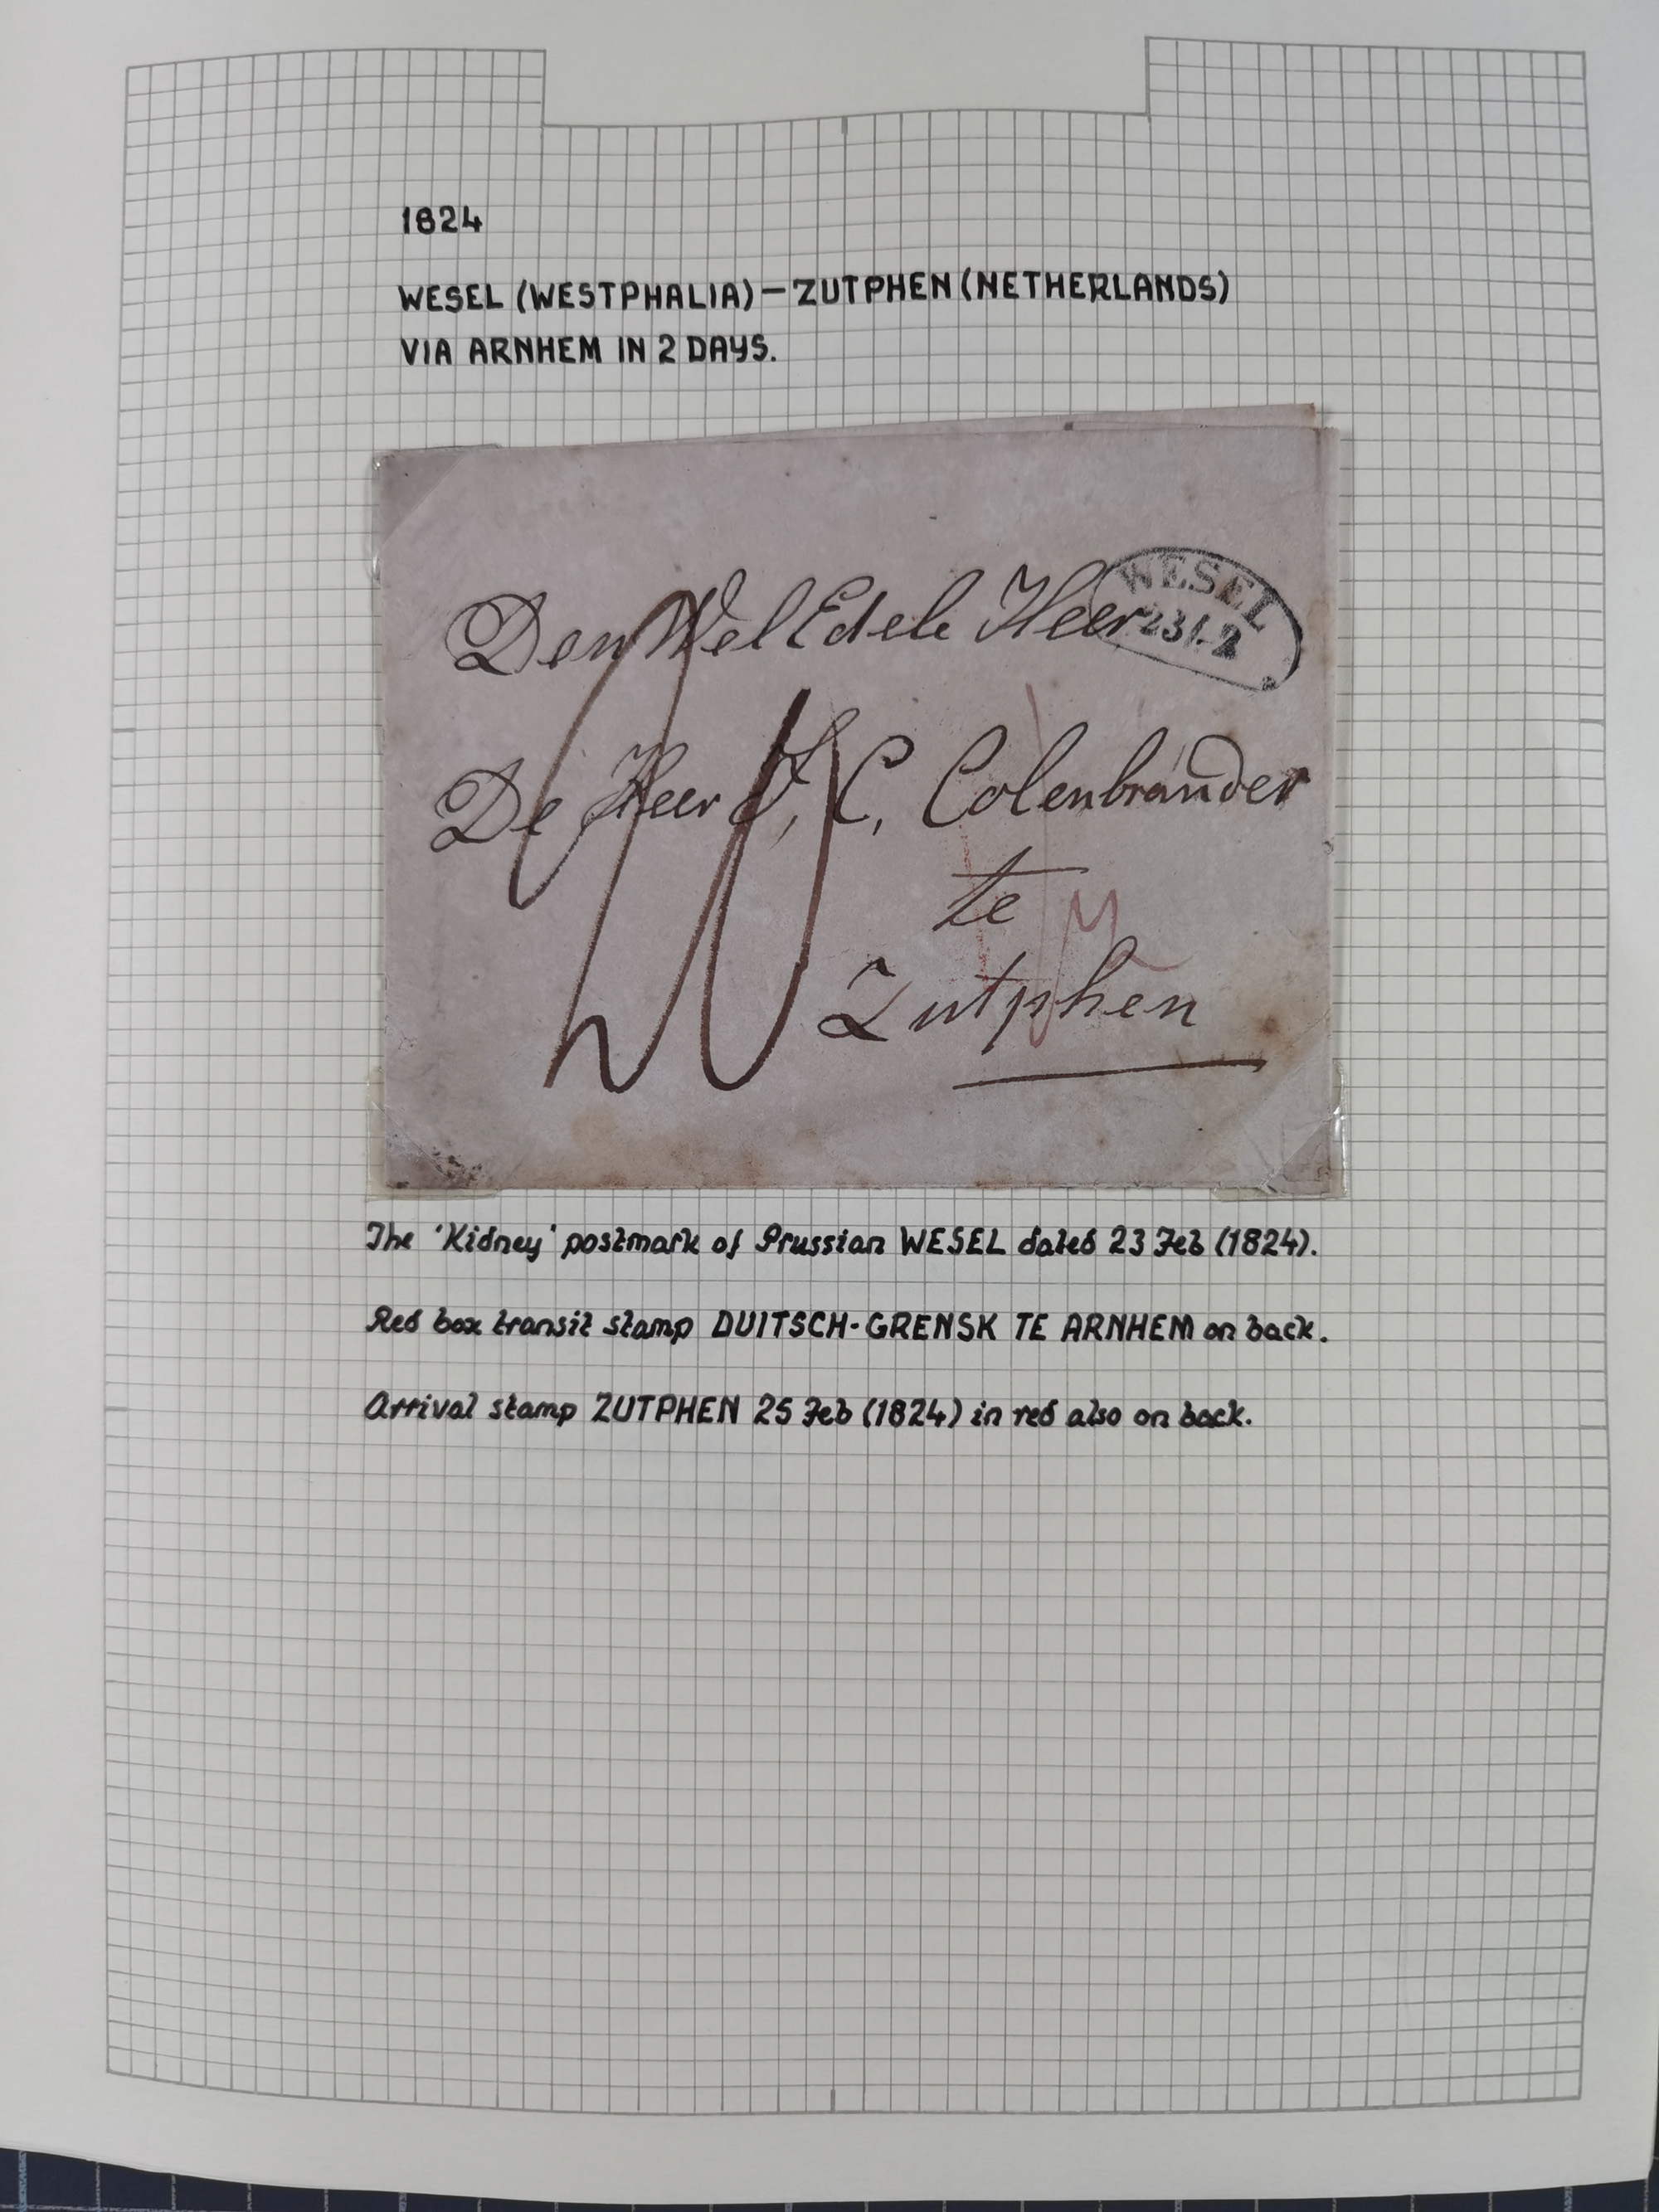 1824
WESEL (WESTPHALIA) – ZUTPHEN (NETHERLANDS)
VIA ARNHEM IN 2 DAYS.
WESEL
23 / 2
Den Wel Edele Heer
De Heer C, Colenbrander
te
Zutphen
The 'Kidney' postmark of Prussian WESEL dated 23 Feb (1824).
Red box transit stamp DUITSCH-GRENSK TE ARNHEM on back.
Arrival stamp ZUTPHEN 25 Feb (1824) in red also on back.